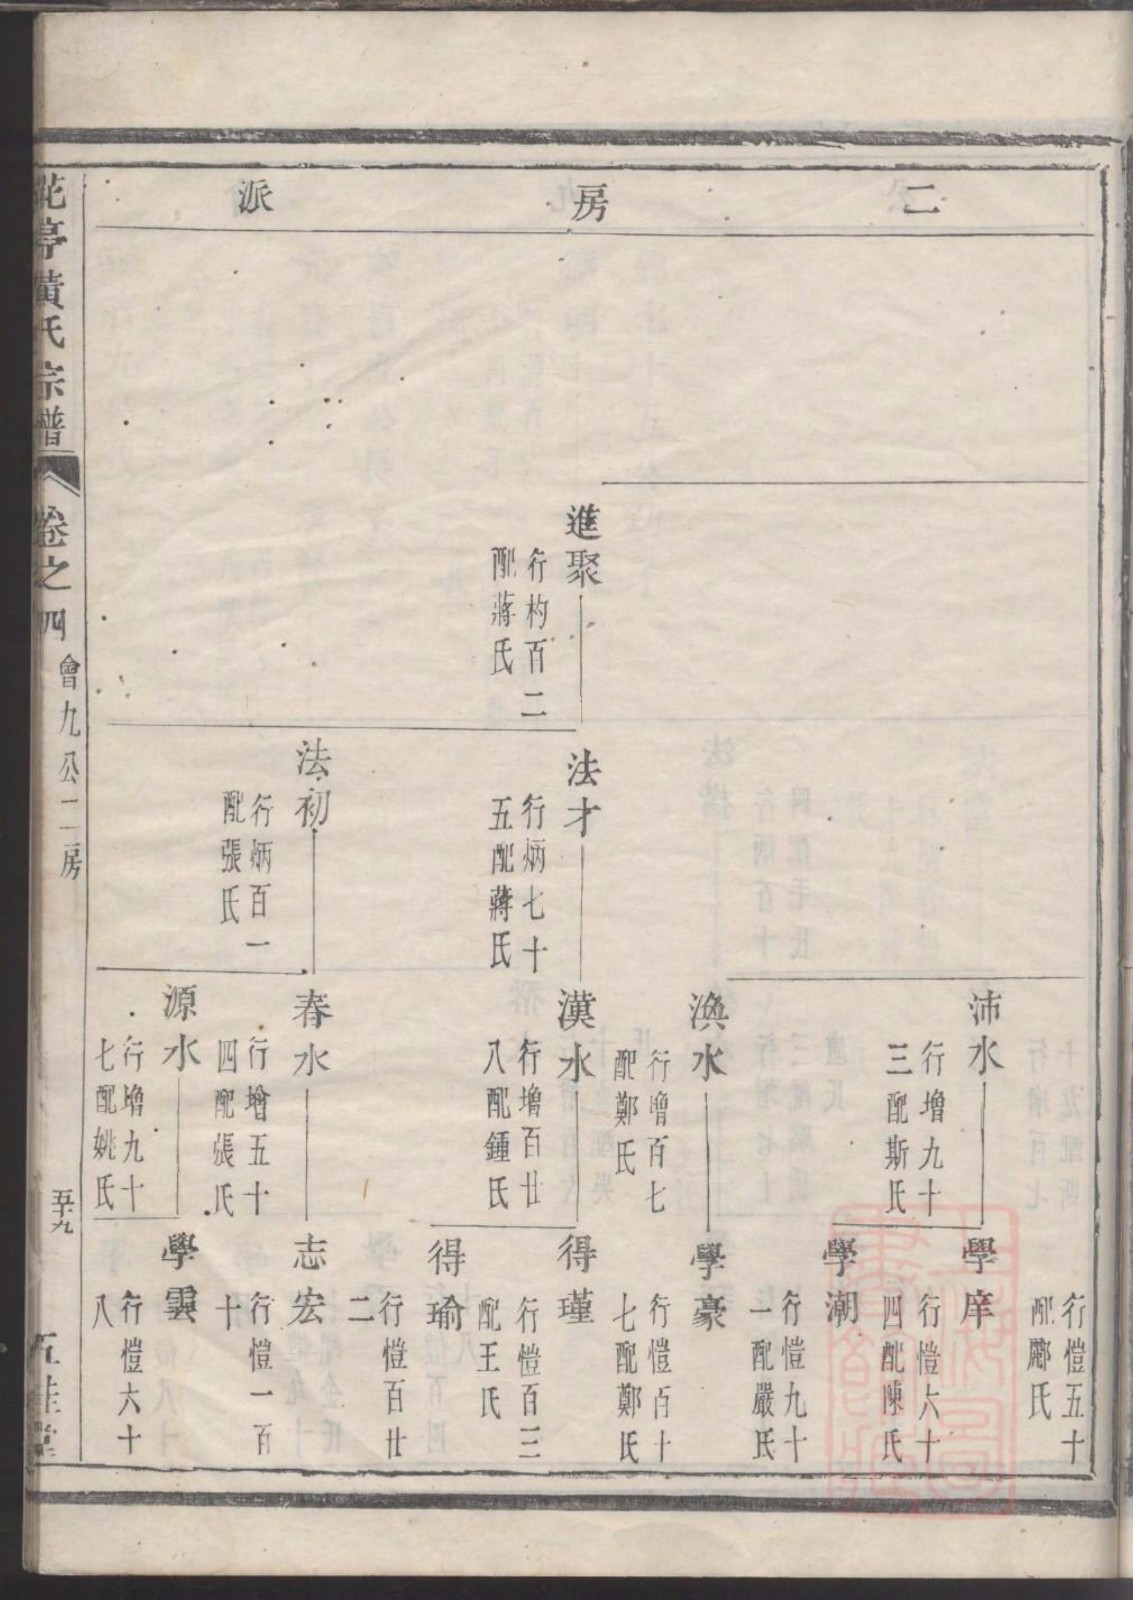 二房派
進聚
行杓百二
配蔣氏
法才
行炳七十
五配蔣氏
法初
行炳百一
配張氏
沛水
行增九十
三配斯氏
渙水
行增百七
配鄭氏
漢水
行增百廿
八配鍾氏
春水
行增五十
四配張氏
源水
行增九十
七配姚氏
行愷五十
配酈氏
學庠
行愷六十
四配陳氏
學潮
行愷九十
一配嚴氏
學豪
行愷百十
七配鄭氏
得瑾
行愷百三
配王氏
得瑜
行愷百廿
二
志宏
行愷一百
十
學雲
行愷六十
八
花亭黃氏宗譜
卷之四
會九公二房
五十九
五桂堂